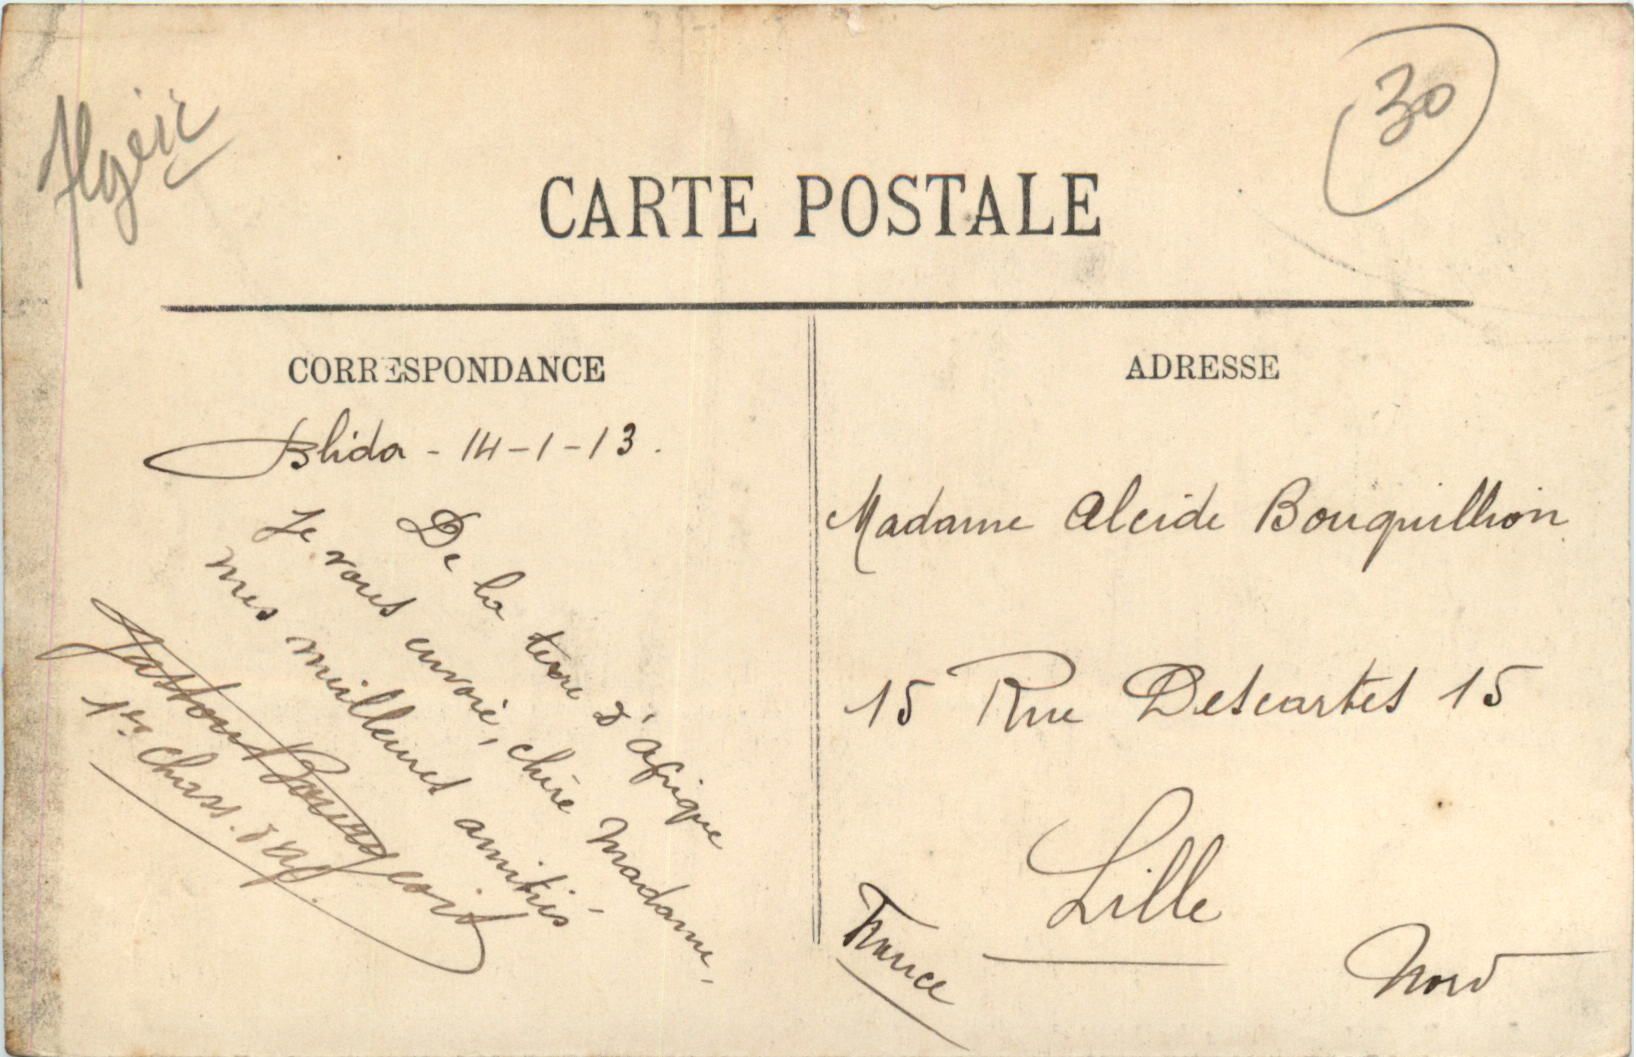 Algérie
30
CARTE POSTALE
CORRESPONDANCE
Blida - 14-1-13.
De la terre d'Afrique
Je vous envoie, chère Madame,
mes meilleures amitiés
Gaston
1er Chass. d'Af.
ADRESSE
Madame Alcide Bouquillion
15 Rue Descartes 15
Lille
Nord
France